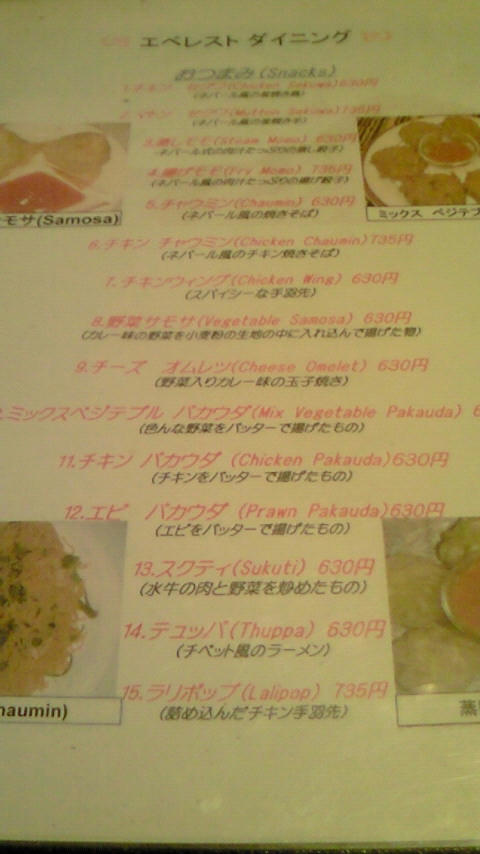 エベレスト ダイニング
おつまみ(Snacks)
1.チキン セクワ(Chicken Sekuwa)630円
2.マトン セクワ(Mutton Sekuwa)735円
3.蒸しモモ(Steam Momo) 630円
(ネパール式の肉汁たっぷりの蒸し餃子)
4.揚げモモ(Fry Momo) 735円
(ネパール風の肉汁たっぷりの揚げ餃子)
モサ(Samosa)
5.チャウミン(Chaumin) 630円
(ネパール風の焼きそば)
ミックス ベジテブ
6.チキン チャウミン(Chicken Chaumin)735円
(ネパール風のチキン焼きそば)
7.チキンウィング(Chicken Wing) 630円
(スパイシーな手羽先)
8.野菜サモサ(Vegetable Samosa) 630円
(カレー味の野菜を小麦粉の生地の中に入れ込んで揚げた物)
9.チーズ オムレツ(Cheese Omelet) 630円
(野菜入りカレー味の玉子焼き)
.ミックスベジテブル パカウダ(Mix Vegetable Pakauda) 6
(色んな野菜をバッターで揚げたもの)
11.チキン パカウダ (Chicken Pakauda)630円
(チキンをバッターで揚げたもの)
12.エビ パカウダ (Prawn Pakauda)630円
(エビをバッターで揚げたもの)
13.スクティ(Sukuti) 630円
(水牛の肉と野菜を炒めたもの)
14.テュッパ(Thuppa) 630円
(チベット風のラーメン)
15.ラリポップ(Lalipop) 735円
(詰め込んだチキン手羽先)
haumin)
蒸